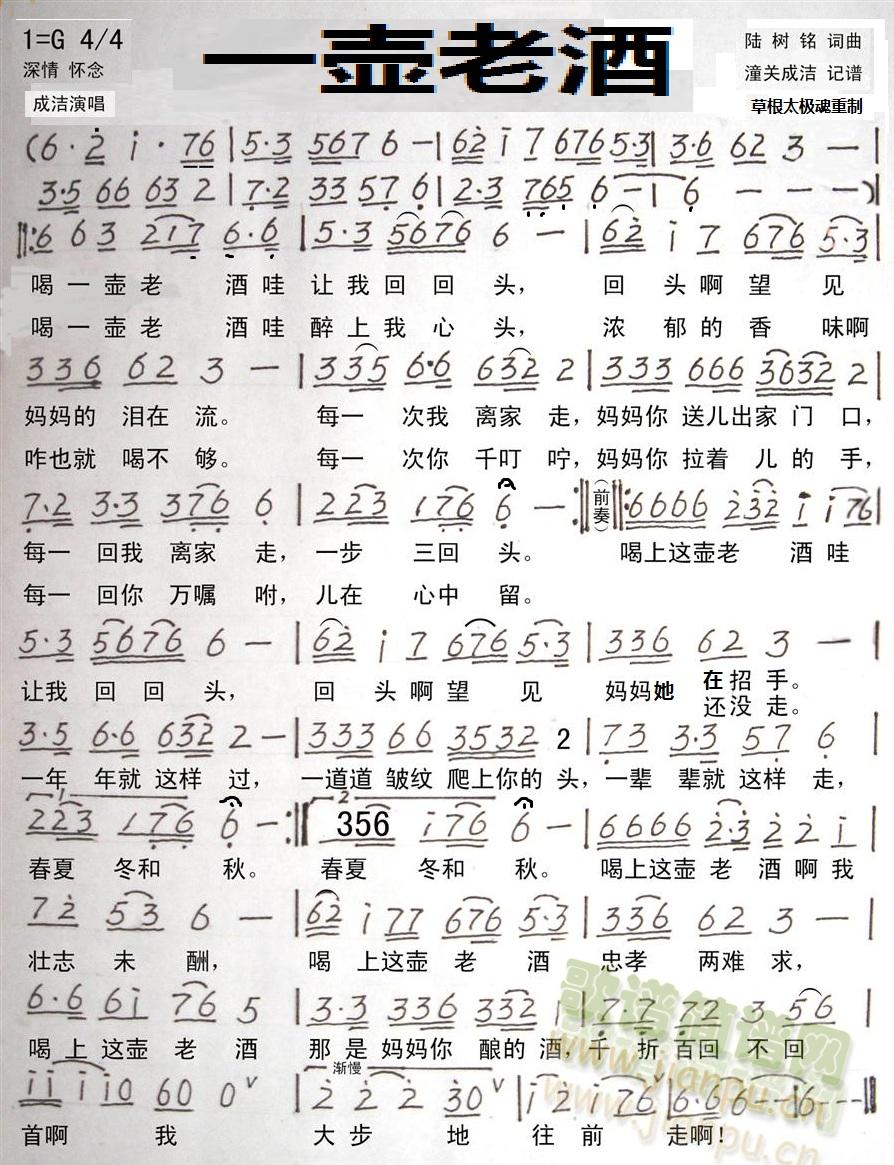 1=G 4/4
一壶老酒
陆 树 铭 词曲
深情 怀念
潼关成洁 记谱
成洁演唱
草根太极魂重制
(6·2 i·76|5·3 567 6 —|62 i 7 676 5·3|3·6 62 3 —|
3·5 66 63 2|7·2 33 57 6|2·3 765 6 —|6 — — —)|
‖:6 63 217 6·6|5·3 5676 6 —|62 i 7 676 5·3|
喝一壶老 酒哇 让我回回头, 回头啊望见
喝一壶老 酒哇 醉上我心头, 浓郁的香味啊
336 62 3 —|335 6·6 632 2|333 666 3632 2|
妈妈的 泪在流。 每一 次我 离家 走,妈妈你 送儿出家 门 口,
咋也就 喝不够。 每一 次你 千叮 咛,妈妈你 拉着 儿的手,
7·2 3·3 376 6|223 176 6 —:‖(前奏)‖:6666 232 i i76|
每一 回我 离家 走, 一步 三回 头。 喝上这壶老 酒哇
每一 回你 万嘱 咐,儿在 心中 留。
5·3 5676 6 —|62 i 7 676 5·3|336 62 3 —|
让我 回回 头, 回头啊望见 妈妈她 在招手。
还没走。
3·5 6·6 632 2 —|333 66 3532 2|73 3·3 57 6|
一年 年就 这样 过, 一道道 皱纹 爬上你的 头,一辈 辈就 这样 走,
1
2
223 176 6 —:‖356 i76 6 —|6666 2·3 2 2 i|
春夏 冬和 秋。 春夏 冬和 秋。 喝上这壶 老 酒啊我
72 53 6 —|62 i 77 676 5·3|336 62 3 —|
壮志 未 酬, 喝 上这壶 老 酒 忠孝 两难 求,
6·6 6i 76 5|3·3 336 332 i|7·7 72 3 56|
喝上 这壶 老 酒 那是 妈妈你 酿的 酒,千 折 百回 不 回
渐慢
ii ii0 60 0∨|2 2 2 30∨|i 2 i 76∨|6·6 6 —|6 — —‖
首啊 我 大 步 地 往 前 走啊!
歌谱简谱网
www.jianpu.cn
www.jianpu.cn